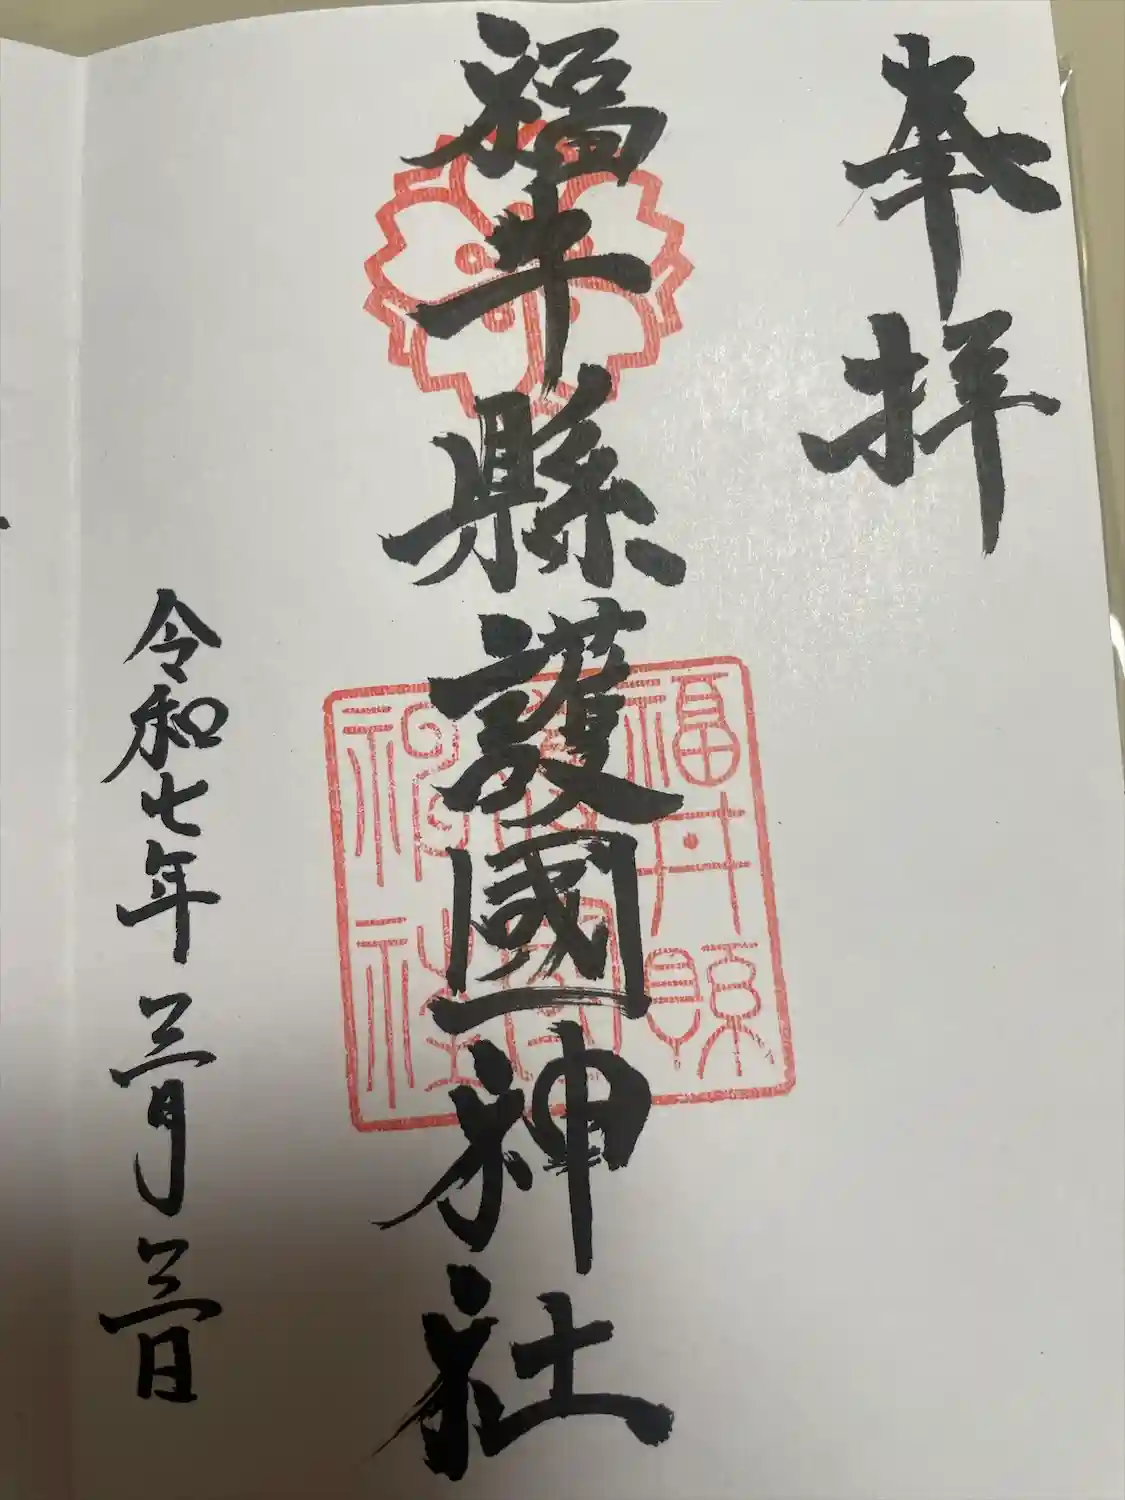 奉拝
福井縣護國神社
福井縣
護國
神社
令和七年三月三日